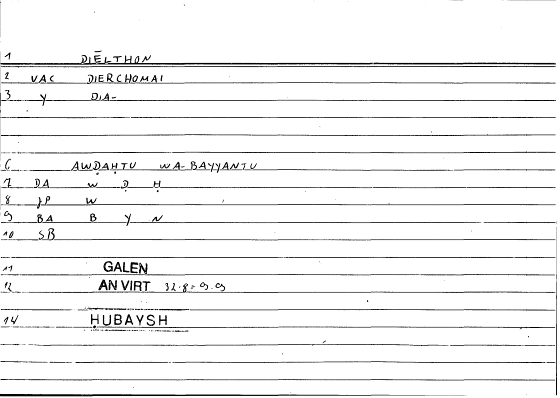 1 DIĒLTHON
2 VAC DIERCHOMAI
3 Y DIA-
6 AWḌAḤTU WA-BAYYANTU
7 DA W Ḍ Ḥ
8 JP W
9 BA B Y N
10 SB
11 GALEN
12 AN VIRT 32.8 = 9.9
14 ḤUBAYSH